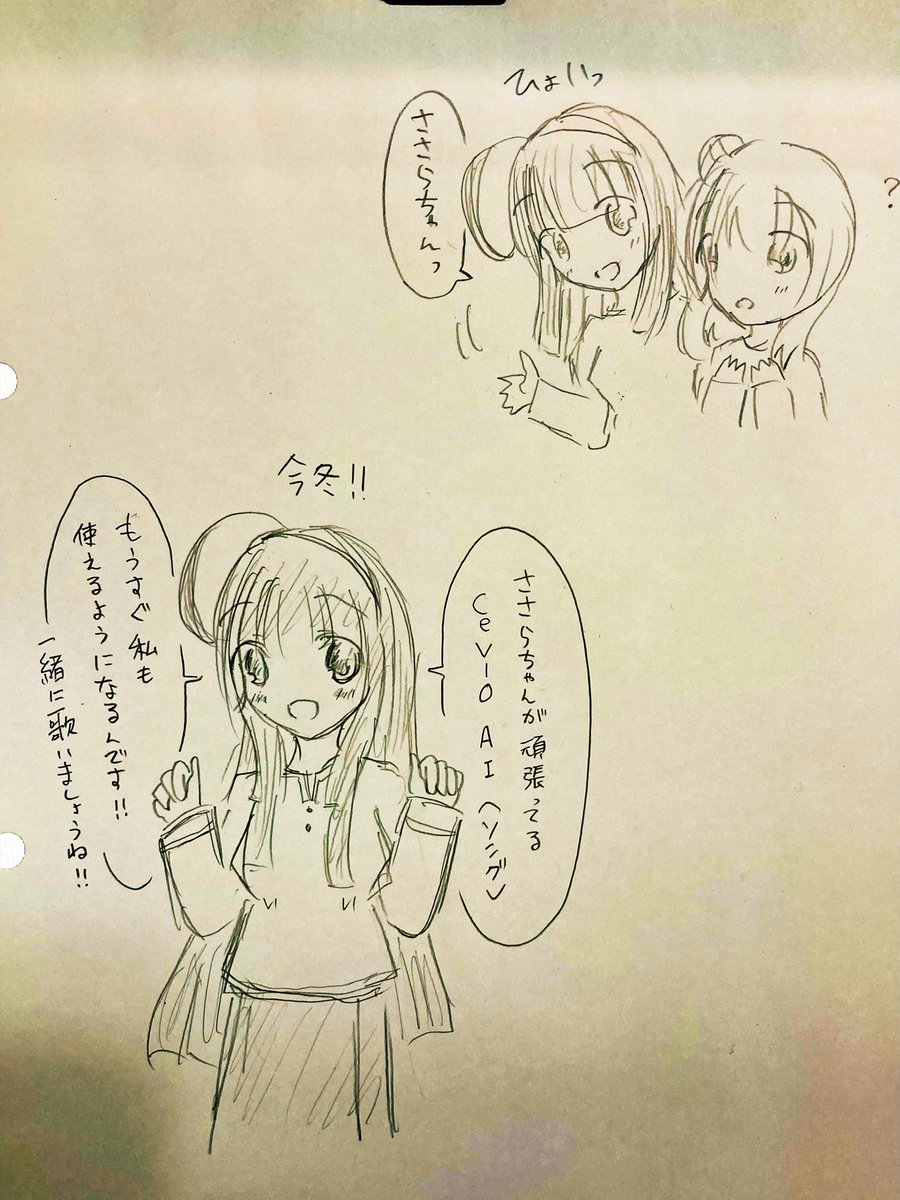 ひょいっ
ささらちゃんっ
?
今冬!!
ささらちゃんが頑張ってる
CeVIO AI〈ソング〉
もうすぐ私も
使えるようになるんです!!
一緒に歌いましょうね!!